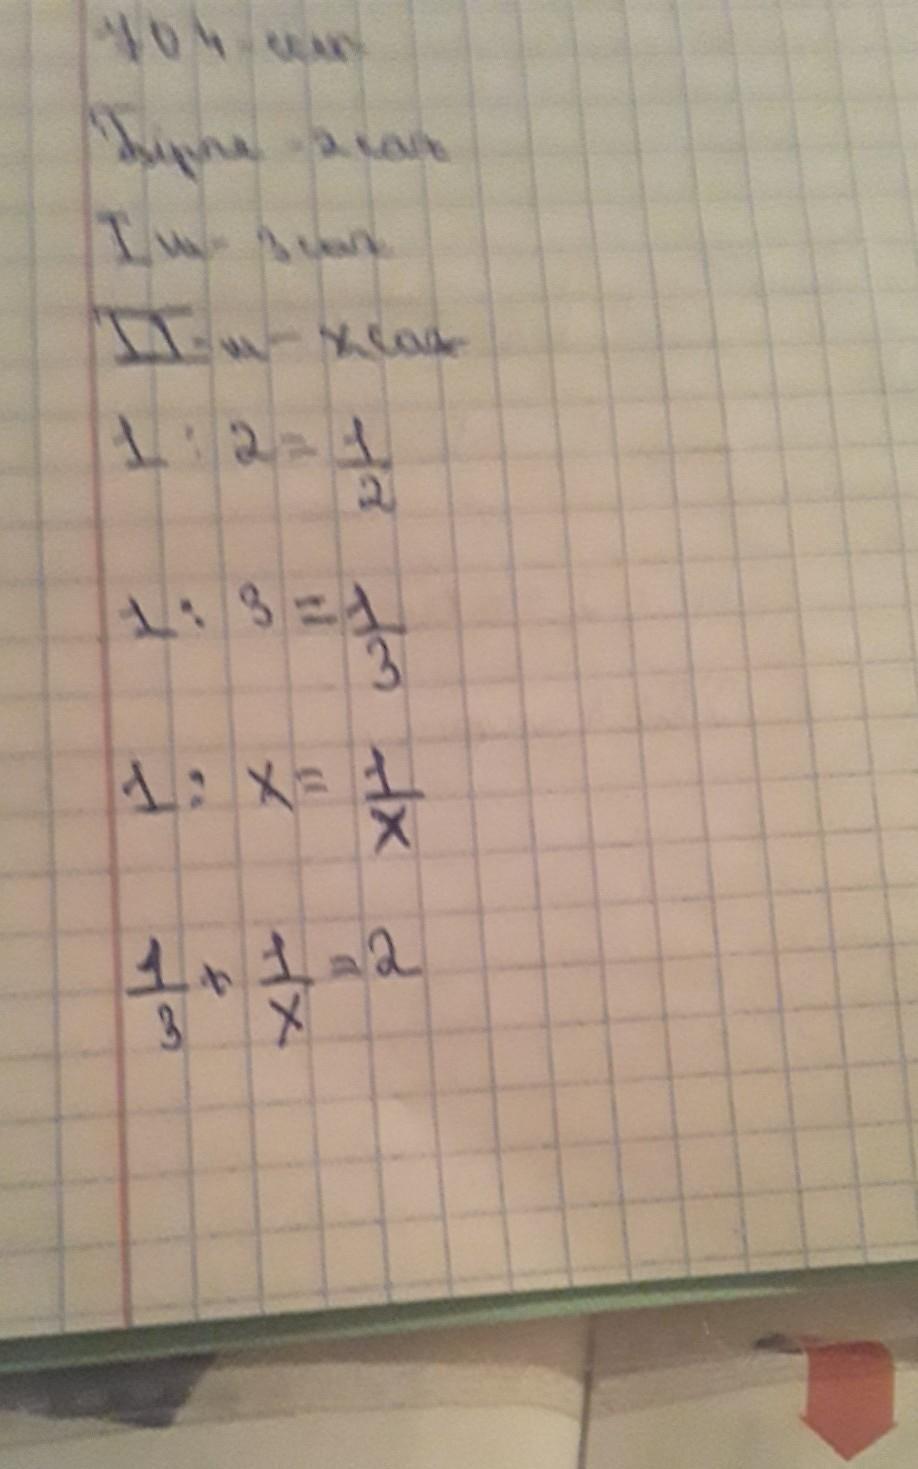 704 - есеп
Бірге - 2 сағ
I м - 3 сағ
II - м - x сағ
1 : 2 = 1/2
1 : 3 = 1/3
1 : x = 1/x
1/3 + 1/x = 2